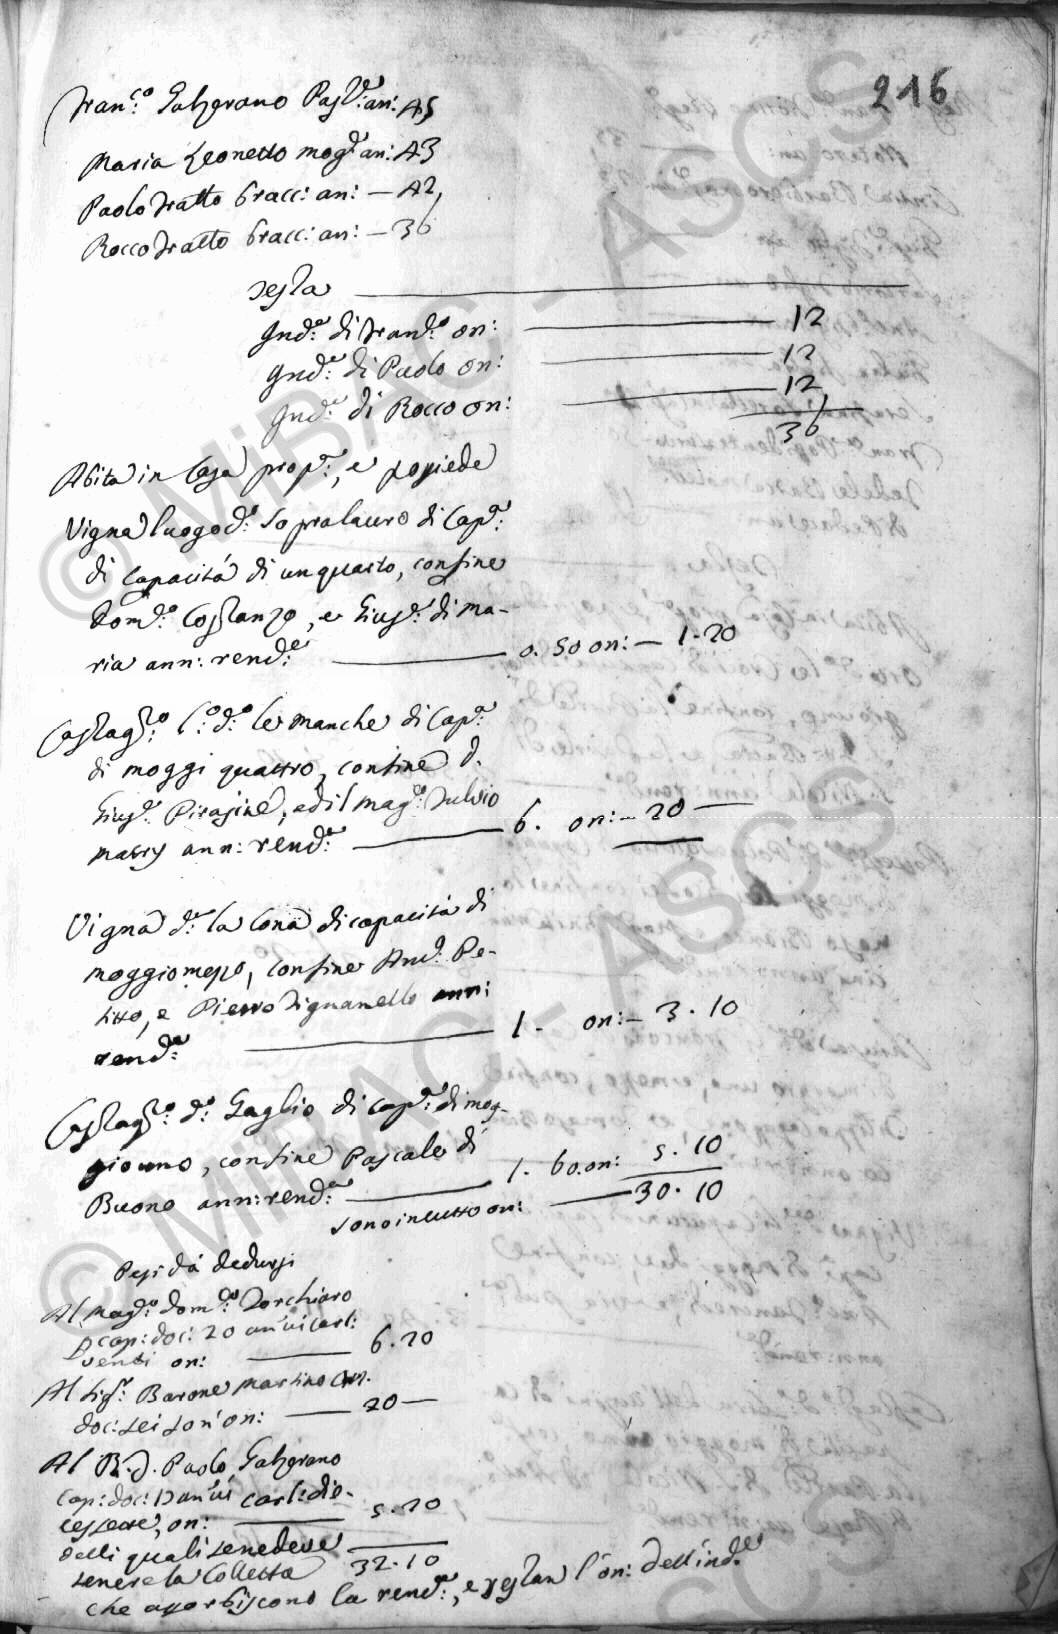 216
Fran:co Galzerano Past:e an: 45
Maria Leonetto mog:e an: 43
Paolo Tratto bracc: an: — 42
Rocco Tratto bracc: an: — 36
Testa
Ind:a di Fran:co on: 12
Ind:a di Paolo on: 12
Ind:a di Rocco on: 12
36
Abita in Casa prop:a, e possiede
Vigna luogo d:o Sopralauro di Cap:a
di Capacità di un quarto, confine
Dom:co Costanzo, e Gius:e di Ma-
ria ann: rend:a 0.50 on: — 1.20
Castag:to l:o d:o le manche di Cap:a
di moggi quattro, confine D.
Gius:e Pirasine, ed il mag:co Fulvio
ann: rend:a 6. on: — 20 —
Vigna d:a la Cona di capacità di
moggio mezzo, confine And:a Pe-
titto, e Pietro Tignanello ann:
rend:a 1. on: — 3.10
Castag:to d:o Gaglio di cap:a di mog-
gio uno, confine Pascale di
Buono ann: rend:a 1.60. on: 5.10
sono in tutto on: 30.10
Pesi da dedursi
Al Mag:co Dom:co Torchiaro
p cap: doc: 20 annui carl:
venti on: 6.20
Al Sig:r Barone Martino ann.
doc: sei son on: 20 —
Al R. D. Paolo Galzerano
cap: doc: annui carl: die-
cessette, on: 5.20
delli quali se ne deve 32.10
tenere la Colletta
che assorbiscono la rend:a, e restan l'on: dell'ind:a
© MiBAC - ASCS
© MiBAC - ASCS